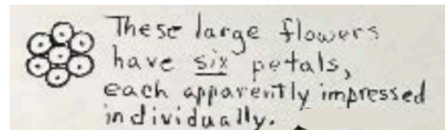 These large flowers
have six petals,
each apparently impressed
individually.